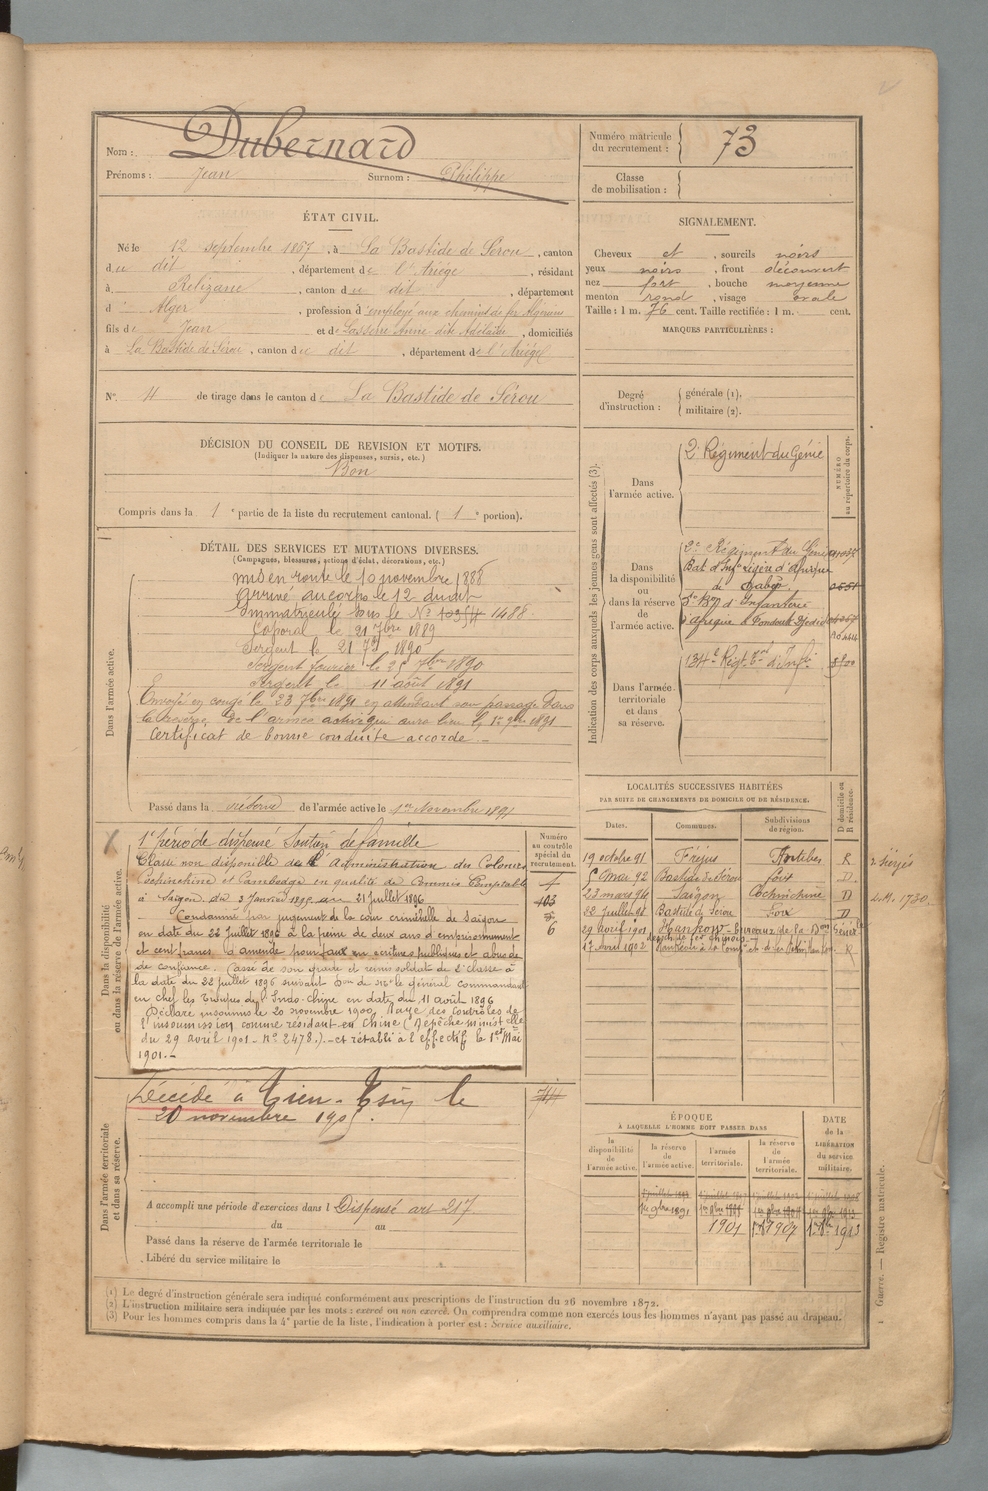 Nom : Dubernard
Prénoms : Jean Surnom : Philippe
Numéro matricule du recrutement : 73
Classe de mobilisation :
ÉTAT CIVIL.
Né le 12 septembre 1867, à La Bastide de Sérou, canton
du dit, département de l'Ariège, résidant
à Relizane, canton du dit, département
d'Alger, profession d'employé aux chemins de fer Algériens
fils de Jean et de Lasserre Anne dite Adélaïde, domiciliés
à La Bastide de Sérou, canton du dit, département de l'Ariège
N° 4 de tirage dans le canton de La Bastide de Sérou
SIGNALEMENT.
Cheveux et, sourcils noirs
yeux noirs, front découvert
nez fort, bouche moyenne
menton rond, visage ovale
Taille : 1 m. 76 cent. Taille rectifiée : 1 m. cent.
MARQUES PARTICULIÈRES :
Degré d'instruction : générale (1).
militaire (2).
DÉCISION DU CONSEIL DE REVISION ET MOTIFS.
(Indiquer la nature des dispenses, sursis, etc.)
Bon
Compris dans la 1e partie de la liste du recrutement cantonal. (1e portion).
DÉTAIL DES SERVICES ET MUTATIONS DIVERSES.
(Campagnes, blessures, actions d'éclat, décorations, etc.)
Dans l'armée active.
mis en route le 10 novembre 1888
Arrivé au corps le 12 du dit
Immatriculé sous le N° 1488
Caporal le 21 7bre 1889
Sergent le 21 1890
Sergent fourrier le 25 7bre 1890
Sergent le 11 août 1891
Envoyé en congé le 23 7bre 1891 en attendant son passage dans
la réserve de l'armée active qui aura lieu le 1er 9bre 1891
Certificat de bonne conduite accordé.
Passé dans la réserve de l'armée active le 1er Novembre 1891
Dans la disponibilité ou dans la réserve de l'armée active.
1e période dispensé Soutien de famille
Classé non disponible de l'Administration des Colonies
Cochinchine et Cambodge en qualité de Commis Comptable
à Saïgon du 3 Janvier 1895 au 21 juillet 1896
Condamné par jugement de la cour criminelle de Saïgon
en date du 22 Juillet 1896 à la peine de deux ans d'emprisonnement
et cent francs d'amende pour faux en écritures publiques et abus de
de confiance. Cassé de son grade et remis soldat de 2e classe à
la date du 22 juillet 1896 suivant Don de Mr le général Commandant
en chef les troupes de l'Indo-Chine en date du 11 août 1896
Déclaré insoumis le 20 novembre 1900, Rayé des contrôles de
l'insoumission comme résidant en Chine (Dépêche ministelle
du 29 avril 1901 - n° 2478.) - et rétabli à l'effectif le 1er Mai
1901.-
Numéro au contrôle spécial du recrutement.
403
6
Dans l'armée territoriale et dans sa réserve.
Décédé à Tien-Tsin le
20 novembre 1905.
A accompli une période d'exercices dans l Dispensé art 217
du au
Passé dans la réserve de l'armée territoriale le
Libéré du service militaire le
Indication des corps auxquels les jeunes gens sont affectés (3).
NUMÉRO au répertoire du corps.
Dans l'armée active.
2e Régiment du Génie
Dans la disponibilité ou dans la réserve de l'armée active.
2e Régiment du Génie
Bat d'Infrie légère d'Afrique
de Gabès
5e Bon d'Infanterie
d'Afrique à Foudouk Djedid
Dans l'armée territoriale et dans sa réserve.
134e Régt Trial d'Infie
LOCALITÉS SUCCESSIVES HABITÉES
PAR SUITE DE CHANGEMENTS DE DOMICILE OU DE RÉSIDENCE.
Dates. Communes. Subdivisions de région. D domicile ou R résidence.
19 octobre 91 Fréjus Antibes R
5 Mai 92 Bastide de Sérou Foix D
23 mars 94 Saïgon Cochinchine D
22 Juillet 96 Bastide de Sérou Foix D
29 Avril 1901 Hankow - Bureaux de la Don Générale
des ch. de fer chinois
1er Avril 1902
2, M. 1730.
ÉPOQUE
À LAQUELLE L'HOMME DOIT PASSER DANS
la disponibilité de l'armée active. la réserve de l'armée active. l'armée territoriale. la réserve de l'armée territoriale. DATE de la LIBÉRATION du service militaire.
1er 9bre 1891
1901 1907 1913
(1) Le degré d'instruction générale sera indiqué conformément aux prescriptions de l'instruction du 26 novembre 1872.
(2) L'instruction militaire sera indiquée par les mots : exercé ou non exercé. On comprendra comme non exercés tous les hommes n'ayant pas passé au drapeau.
(3) Pour les hommes compris dans la 4e partie de la liste, l'indication à porter est : Service auxiliaire.
Guerre. — Registre matricule.